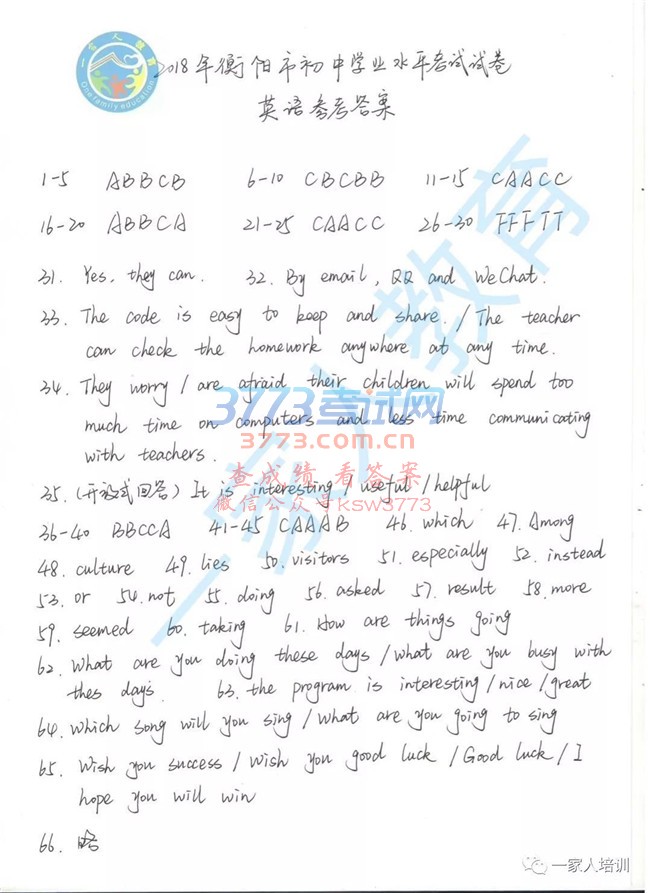 一家人教育
Onefamily education
2018年衡阳市初中学业水平考试试卷
英语参考答案
1-5 ABBCB 6-10 CBCBB 11-15 CAACC
16-20 ABBCA 21-25 CAACC 26-30 FFFTT
31. Yes, they can. 32. By email, QQ and WeChat.
33. The code is easy to keep and share. / The teacher
can check the homework anywhere at any time.
34. They worry / are afraid their children will spend too
much time on computers and less time communicating
with teachers.
3773考试网
3773.com.cn
查成绩 看答案
微信公众号ksw3773
35. (开放式回答) It is interesting / useful / helpful
36-40 BBCCA 41-45 CAAAB 46. which 47. Among
48. culture 49. lies 50. visitors 51. especially 52. instead
53. or 54. not 55. doing 56. asked 57. result 58. more
59. seemed 60. taking 61. How are things going
62. What are you doing these days / what are you busy with
thes days. 63. the program is interesting / nice / great
64. which song will you sing / what are you going to sing
65. Wish you success / wish you good luck / Good luck / I
hope you will win
66. 略
一家人教育
一家人培训